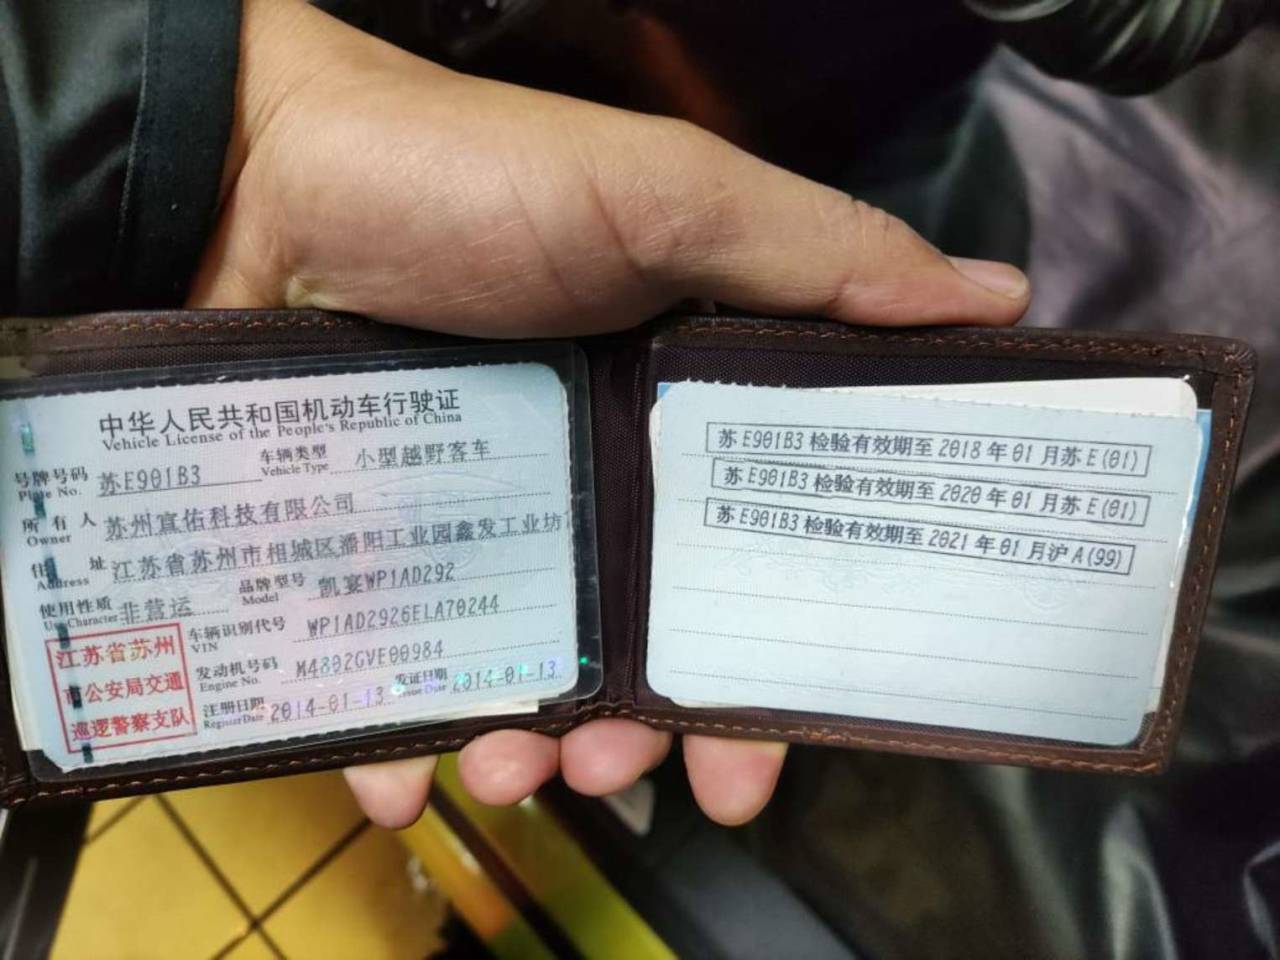 中华人民共和国机动车行驶证
Vehicle License of the People's Republic of China
号牌号码 苏E901B3 车辆类型 小型越野客车
Plate No. Vehicle Type
所有人 苏州宣佑科技有限公司
Owner
住址 江苏省苏州市相城区潘阳工业园鑫发工业坊
Address
使用性质 非营运 品牌型号 凯宴WP1AD292
Use Character Model
江苏省苏州
市公安局交通
巡逻警察支队
车辆识别代号 WP1AD2926ELA70244
VIN
发动机号码 M4802GVE00984
Engine No.
注册日期 2014-01-13 发证日期 2014-01-13
Register Date Issue Date
苏E901B3检验有效期至2018年01月苏E(01)
苏E901B3检验有效期至2020年01月苏E(01)
苏E901B3检验有效期至2021年01月沪A(99)